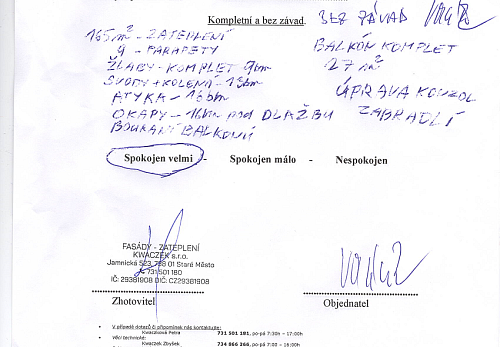 Kompletní a bez závad. BEZ ZÁVAD
165 m² - ZATEPLENÍ
4 - PARAPETY
ŽLABY - KOMPLET 9bm
SVODY + KOLENA - 13bm
ATYKA - 16bm
OKAPY - 16bm pod DLAŽBU
BOURÁNÍ BALKONŮ
BALKÓN KOMPLET
27 m²
ÚPRAVA KONZOL
ZÁBRADLÍ
Spokojen velmi - Spokojen málo - Nespokojen
FASÁDY - ZATEPLENÍ
KWACZEK s.r.o.
Jamnická 523, 738 01 Staré Město
731 501 180
IČ: 29381908 DIČ: CZ29381908
Zhotovitel
Objednatel
V případě dotazů či připomínek nás kontaktujte:
Kwaczková Petra 731 501 181, po-pá 7:30h - 17:00h
Věci technické:
Kwaczek Zbyšek 734 866 366, po-pá 7:00 - 15:00h